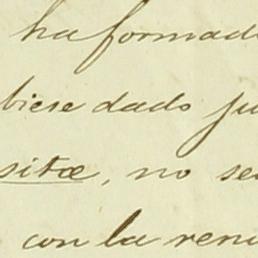 ha formado
biese dado ju
sitæ, no se
con la renu